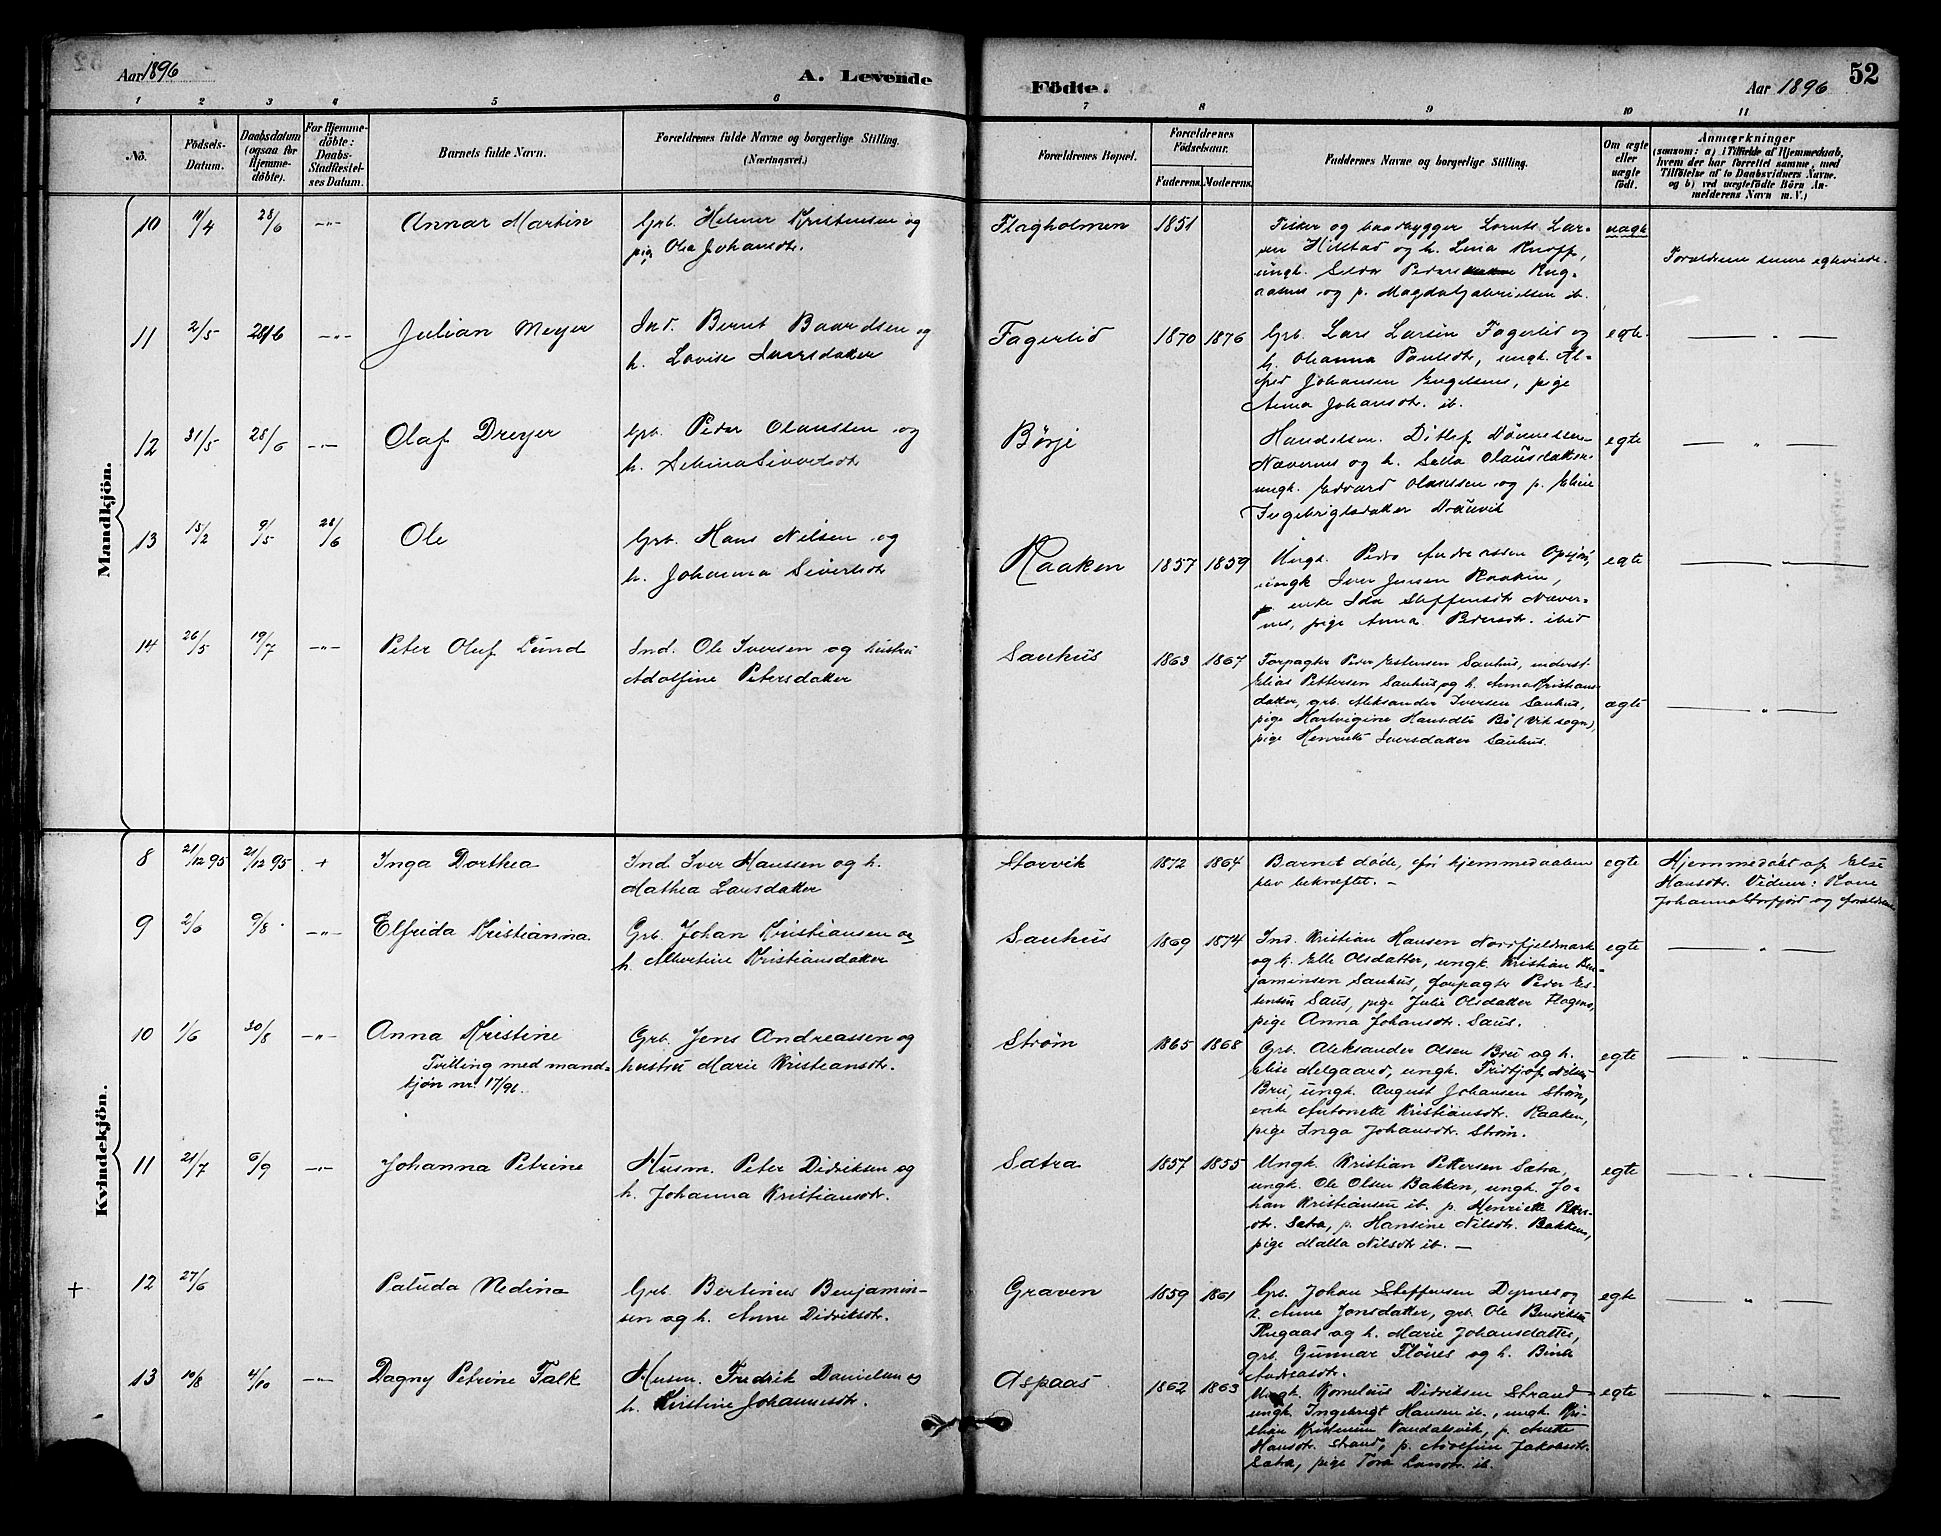 52
Aar 1896
A. Levende
Födte.
Aar 1896
1 2 3 4 5 6 7 8 9 10 11
No.
Födsels-Datum.
Daabsdatum (ogsaa for Hjemmedöbte).
For Hjemmedöbte: Daabs-Stadfæstelses Datum.
Barnets fulde Navn.
Forældrenes fulde Navne og borgerlige Stilling. (Næringsvei.)
Forældrenes Bopæl.
Forældrenes Födselsaar.
Faderens. Moderens.
Faddernes Navne og borgerlige Stilling.
Om ægte eller uægte födt.
Anmærkninger
(saasom: a) i Tilfælde af Hjemmedaab, hvem der har forrettet samme, med Tilföielse af to Daabsvidners Navne, og b) ved uægtefödte Börn Anmelderens Navn m. V.)
Mandkjön.
10 11/4 28/6 -"- Annar Martin
Grb. Helmer Kristensen og
pige Ola Johansdtr.
Flagholmen 1851
Fisker og baadbygger Lornts Lar-
sen Hilstad og h. Lina Knoff,
ungk. Peder
og p. Magda Gabrielsen ib.
uægte
Forældrene senere egteviede.
11 2/5 28/6 -"- Julian Meyer
Ind. Bernt Baardsen og
h. Lovise Iversdatter
Fagerlid 1870 1876
Grb. Lars Larsen Fagerlid og
h. Ohanna Paulsdtr, ungk. Al-
fred Johansen Engelsnes, pige
Anna Johansdtr. ib.
egte "
12 31/5 28/6 -"- Olaf Dreyer
Grb. Peder Olaussen og
h. Selma Sivertsdtr
Børje
Handelsm. Ditlef Dønnessen
Nævernes og h. Sella Olausdatter
ungk. Edvard Olaussen og p. Eline
Ingebrigtsdatter
egte "
13 15/2 9/5 28/6 Ole
Grb. Hans Nilsen og
h. Johanna Sivertsdtr
Kaaken 1857 1859
Ungk. Peder Andreassen
ungk Iver Jensen Kaaken,
enke Ida Steffensdtr Næver-
nes, pige Anna Pedersdtr. ibid
egte "
14 26/5 19/7 -"- Peter Oluf Lund
Ind. Ole Iversen og hustru
Adolfine Petersdatter
Sauhus 1863 1867
Forpagter Peder Estensen Sauhus, inderst
Elias Pettersen Sauhus og h. Anna Kristians-
datter, grb. Aleksander Iversen Sauhus,
pige Hartvigine Hansdtr Bø (Vik sogn),
pige Henriette Iversdatter Sauhus.
ægte "
Kvindekjön.
8 21/12 95 21/12 95 + Inga Dorthea
Ind. Iver Hanssen og h.
Mathea Larsdatter
Storvik 1872 1864
Barnet døde, før hjemmedaaben
blev bekræftet. -
egte
Hjemmedøbt af Else
Hansdtr. Vidner: Kone
Johanna Storfjord og forældrene
9 2/6 9/8 -"- Elfrida Kristianna
Grb. Johan Kristiansen og
h. Albertine Kristiansdatter
Sauhus 1869 1874
Ind. Kristian Hansen Nordfjeldmark
og h. Elle Olsdatter, ungk. Kristian Ben-
jaminsen Sauhus, forpagter Peder Es-
tensen Saus, pige Julie Olsdatter Flagens,
pige Anna Johansdtr. Saus.
egte "
10 1/6 30/8 -"- Anna Kristine
Tvilling med mand-
kjøn nr. 17/96.
Grb. Jens Andreassen og
hustru Marie Kristiansdtr.
Strøm 1865 1868
Grb. Aleksander Olsen Bru og h.
Elise Melgaard, ungk. Fridtjof Nilsen
Bru, ungk. August Johansen Strøm,
enke Antonette Kristiansdtr. Kaaken,
pige Inga Johansdtr. Strøm.
egte "
11 21/7 6/9 -"- Johanna Petrine
Husm. Peter Didriksen og
h. Johanna Kristiansdtr.
Sætra 1857 1855
Ungk. Kristian Pettersen Sætra,
ungk. Ole Olsen Bakken, ungk. Jo-
han Kristiansen ib. p. Henriette Peters-
dtr. Sætra, p. Hansine Nilsdtr. Bakken,
pige Malla Nilsdtr ib. -
egte "
+ 12 27/6 Paluda Nedina
Grb. Bertinus Benjamin-
sen og h. Anne Didriksdtr.
Graven 1859 1861
Grb. Johan Steffensen Dyrnes og
h. Anne Jonsdatter, grb. Ole Benriksen
Rugaas og h. Marie Johansdatter,
grb. Gunnar Flönes og h. Bina
Andreasdtr.
egte "
13 10/8 4/10 -"- Dagny Petrine Falk
Husm. Fredrik Danielsen og
h. Kirstine Johannesdtr.
Aspaas 1862 1863
Ungk. Kornelius Didriksen Strand
ungk. Ingebrigt Hansen ib., ungk. Kri-
stian Kristensen Vandalsvik, p. Anette
Hansdtr. Strand, p. Adolfine Jakobsdtr.
Sætra, pige Tora Larsdtr. ib.
egte "